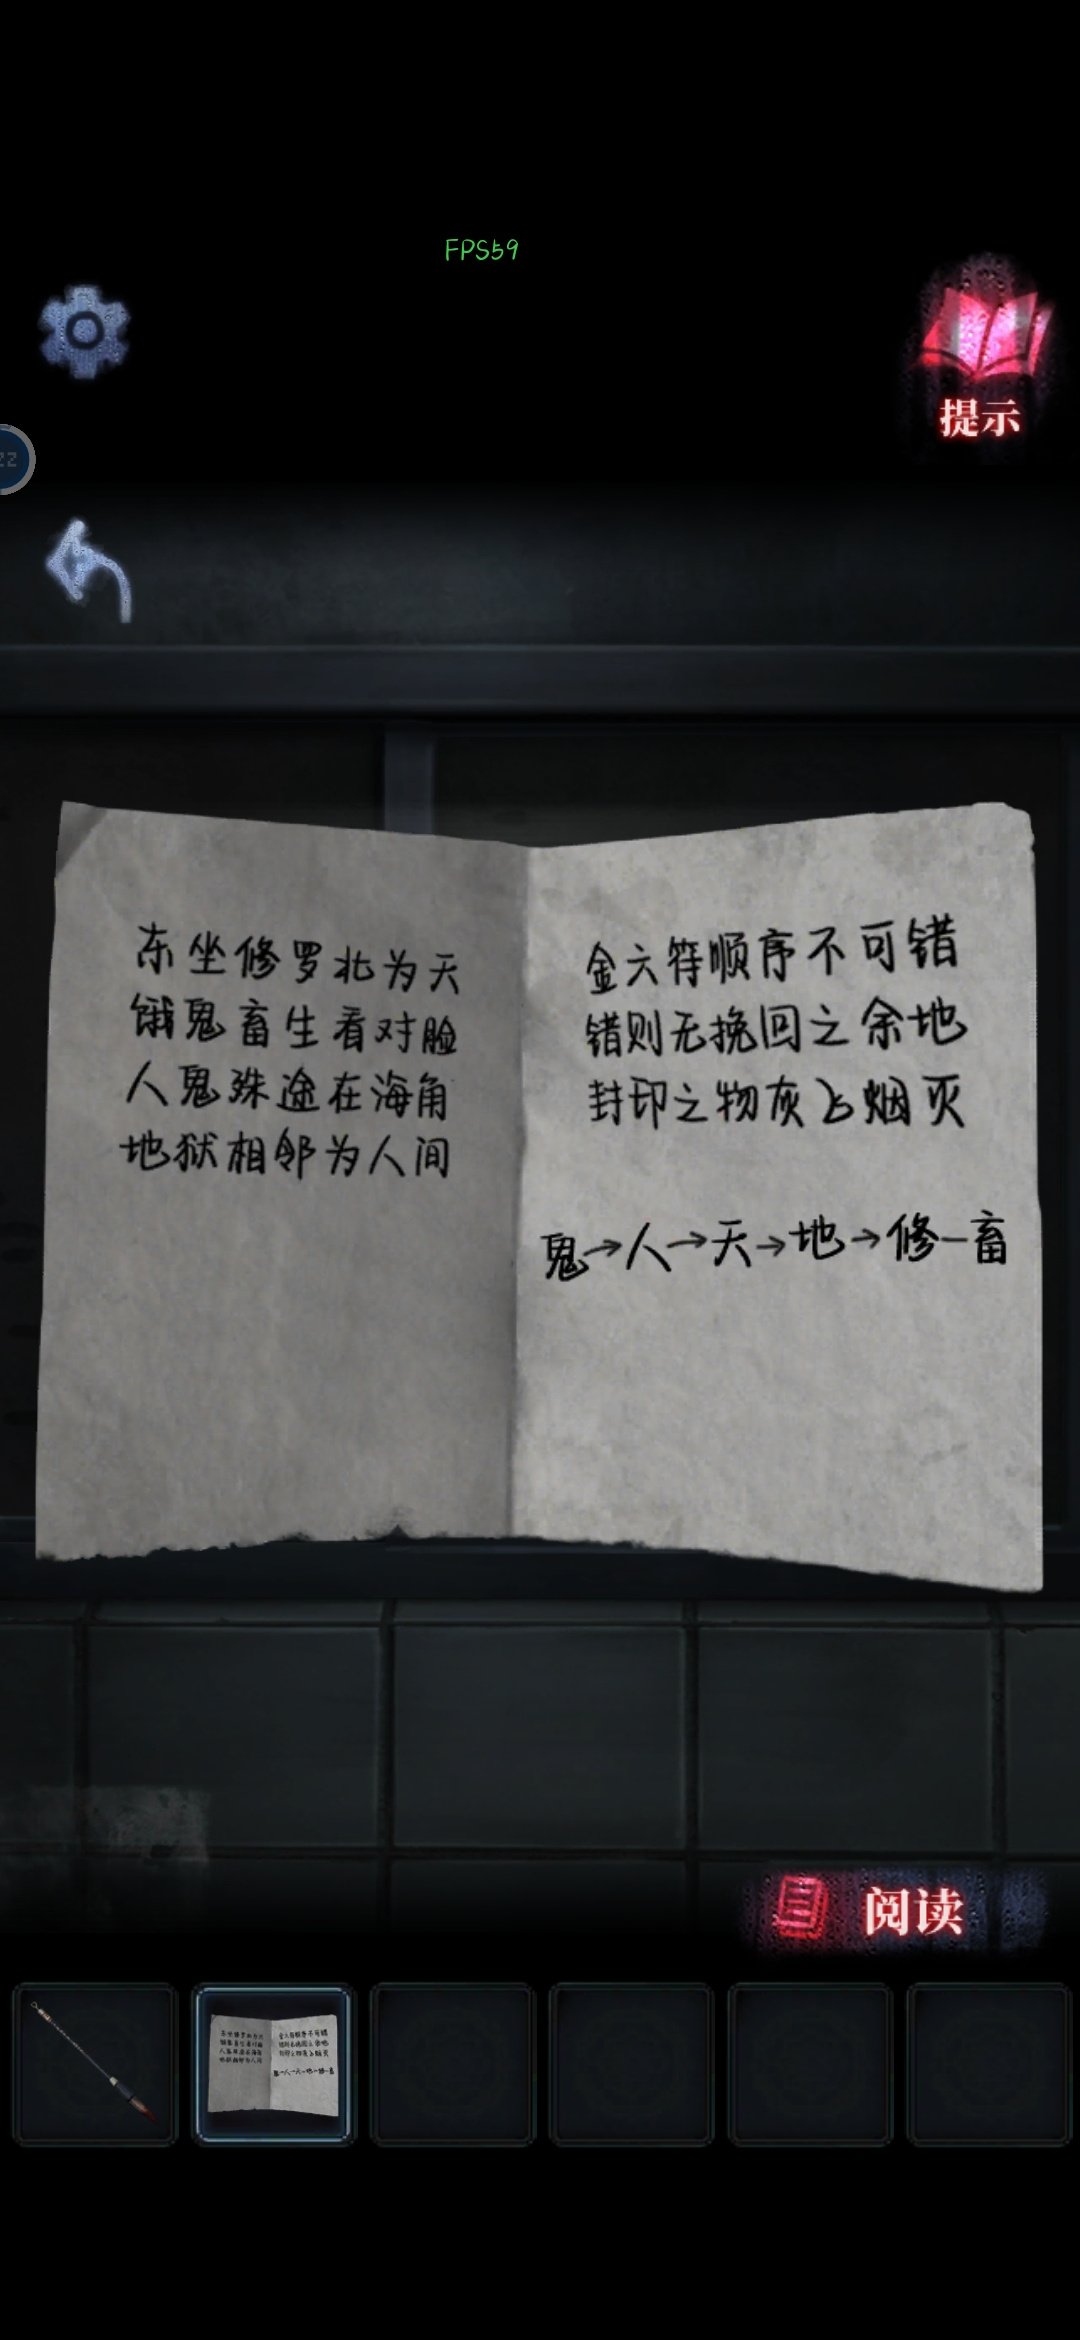 FPS59
提示
东坐修罗北为天
饿鬼畜生看对脸
人鬼殊途在海角
地狱相邻为人间
金六符顺序不可错
错则无挽回之余地
封印之物灰飞烟灭
鬼→人→天→地→修-畜
阅读